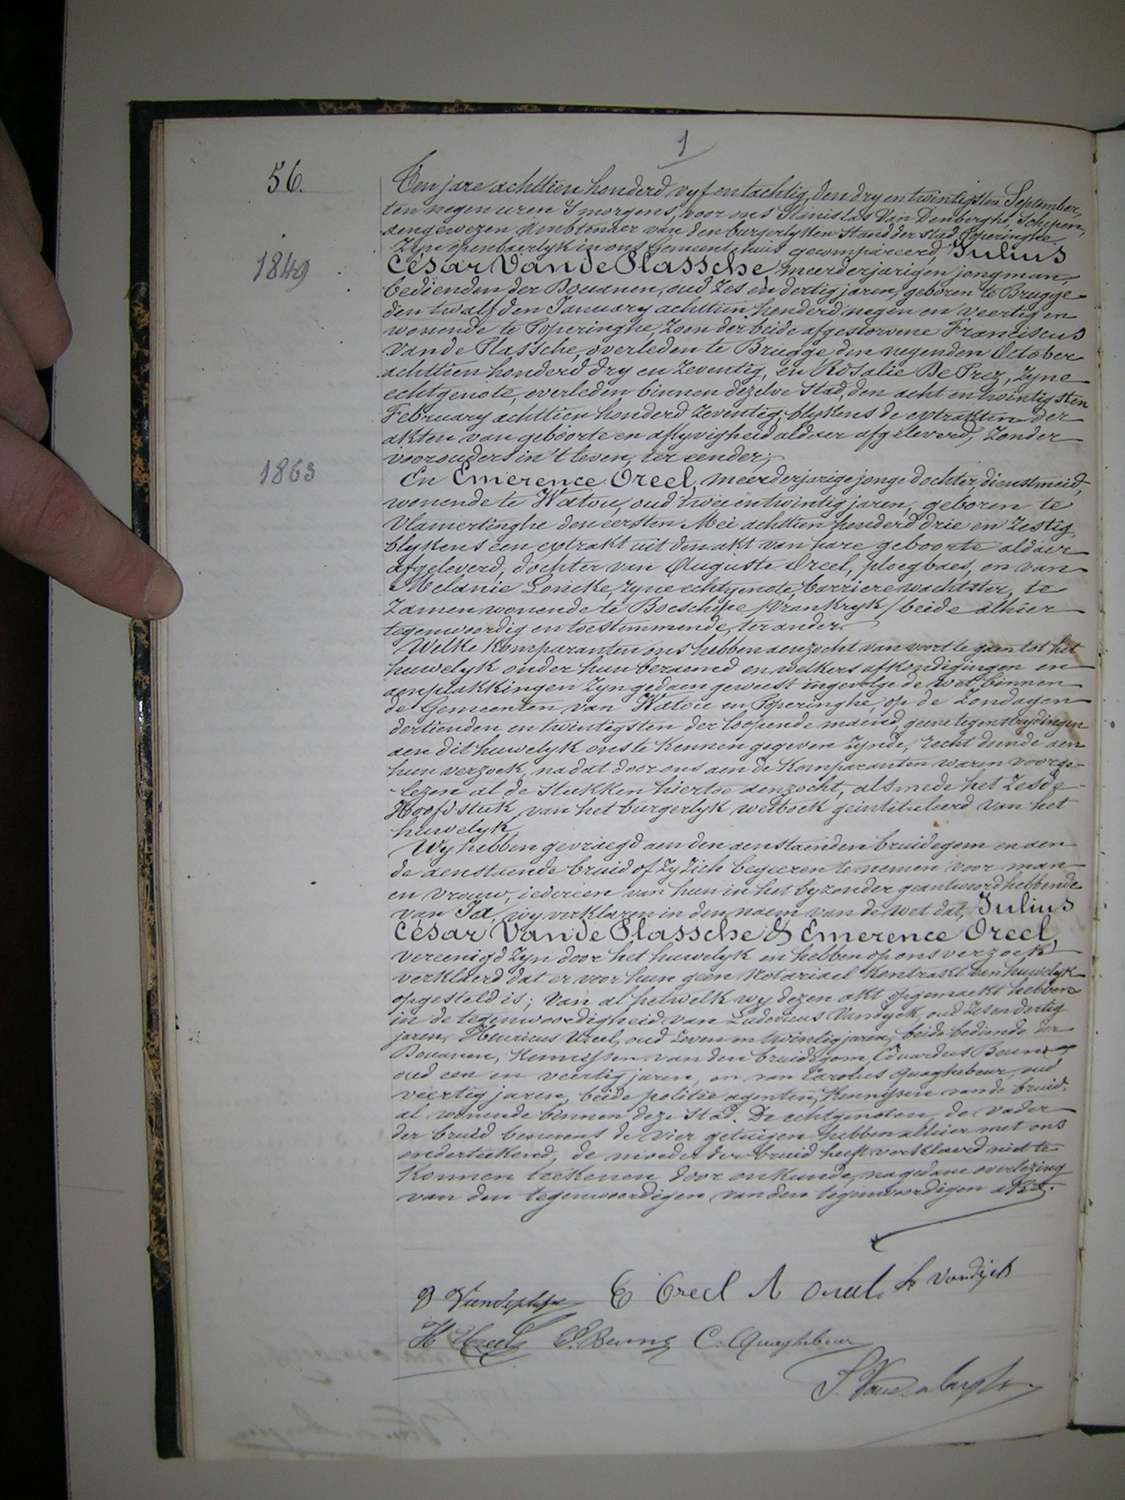 1
56.
Den jare achttien honderd vyf en tachtig, den dry en twintigsten September,
ten negen uren 's morgens, voor ons Stanislas Van Denberghe, Schepen,
aengewezen Ambtenaer van den burgerlyken Stand der stad Poperinghe
Zyn openbaerlyk in ons Gemeentehuis gecompareerd, Julius
1849
César Van de Plassche, meerderjarigen jongman,
bedienden der Douanen, oud zes en dertig jaren, geboren te Brugge
den twalfden January achttien honderd negen en veertig en
wonende te Poperinghe, zoon der beide afgestorvene Franciscus
Van de Plassche, overleden te Brugge den negenden October
achttien honderd dry en zeventig, en Rosalie De Prez, zyne
echtgenote, overleden binnen dezelve stad, den acht en twintigsten
February achttien honderd zeventig, blykens de extrakten der
akten van geboorte en aflyvigheid aldaer afgeleverd, zonder
voorouders in 't leven, ter eender;
1863
En Emerence Oreel, meerderjarige jonge dochter, dienstmeid,
wonende te Watou, oud twee en twintig jaren, geboren te
Vlamertinghe den eersten Mei achttien honderd drie en zestig,
blykens een extrakt uit den akt van hare geboorte aldaer
afgeleverd, dochter van Auguste Oreel, ploegbaes, en van
MelanieLoncke, zyne echtgenote, barrierewachtster, te
zamen wonende te Boeschepe /Vrankryk/ beide alhier
tegenwoordig en toestemmende, ter ander.
Welke Komparanten ons hebben aenzocht van voort te gaen tot het
huwelyk onder hun beraemd en welkers afkondigingen en
aenplakkingen zyn gedaen geweest ingevolge de wet binnen
de Gemeenten van Watou en Poperinghe, op de Zondagen
dertienden en twintigsten der loopende maend, geene tegenstrydingen
aen dit huwelyk ons te Kennen gegeven zynde, recht doende aen
hun verzoek, na dat door ons aen de Komparanten waren voorge-
-lezen al de stukken hiertoe aenzocht, alsmede het Zesde
Hoofdstuk van het burgerlyk wetboek geintituleerd van het
huwelyk,
Wy hebben gevraegd aen den aenstaenden bruidegom en aen
de aenstaende bruid of zy zich begeeren te nemen voor man
en vrouw, iedereen van hun in het byzonder geantwoord hebbende
van Ja, wy verklaren in den naem van de wet dat, Julius
César Van de Plassche & Emerence Oreel,
vereenigd zyn door het huwelyk en hebben op ons verzoek
verklaerd dat er voor hun geen Notariael Kontrakt van huwelyk
opgesteld is; Van al hetwelk wy dezen akt opgemaekt hebben
in de tegenwoordigheid van Ludovicus Vandyck, oud zes en dertig
jaren, Henricus Ureel, oud zeven en twintig jaren, beide bediende der
Douanen, Kennissen van den bruidegom, Eduardus Beun
oud een en veertig jaren, en van Carolus Quaghebeur, oud
veertig jaren, beide politie agenten, Kennissen van de bruid,
al wonende binnen deze Stad. De echtgenoten, de vader
der bruid benevens de vier getuigen hebben alhier met ons
onderteekend, de moeder der bruid heeft verklaerd niet te
Konnen teekenen door onkunde, na gedane overlezing
van den tegenwoordigen van den tegenwoordigen akt.
E Oreel A Oreel L Vandijck
H Ureel E. Beun C. Quaghebeur